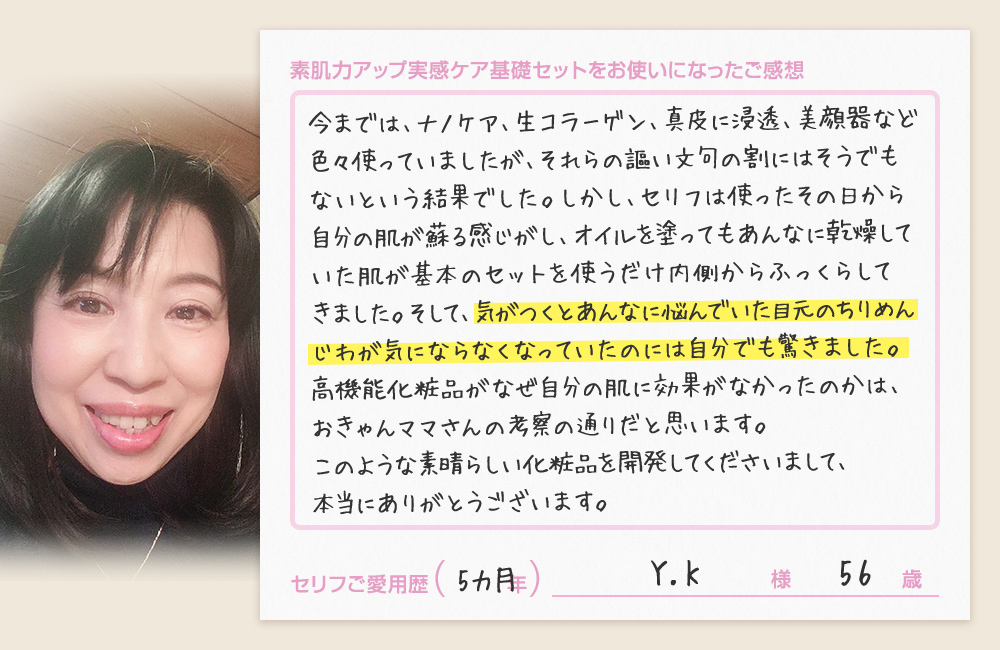 素肌力アップ実感ケア基礎セットをお使いになったご感想
今までは、ナノケア、生コラーゲン、真皮に浸透、美顔器など
色々使っていましたが、それらの謳い文句の割にはそうでも
ないという結果でした。しかし、セリフは使ったその日から
自分の肌が蘇る感じがし、オイルを塗ってもあんなに乾燥して
いた肌が基本のセットを使うだけ内側からふっくらして
きました。そして、気がつくとあんなに悩んでいた目元のちりめん
じわが気にならなくなっていたのには自分でも驚きました。
高機能化粧品がなぜ自分の肌に効果がなかったのかは、
おきゃんママさんの考察の通りだと思います。
このような素晴らしい化粧品を開発してくださいまして、
本当にありがとうございます。
セリフご愛用歴(5カ月年) Y.K 様 56 歳